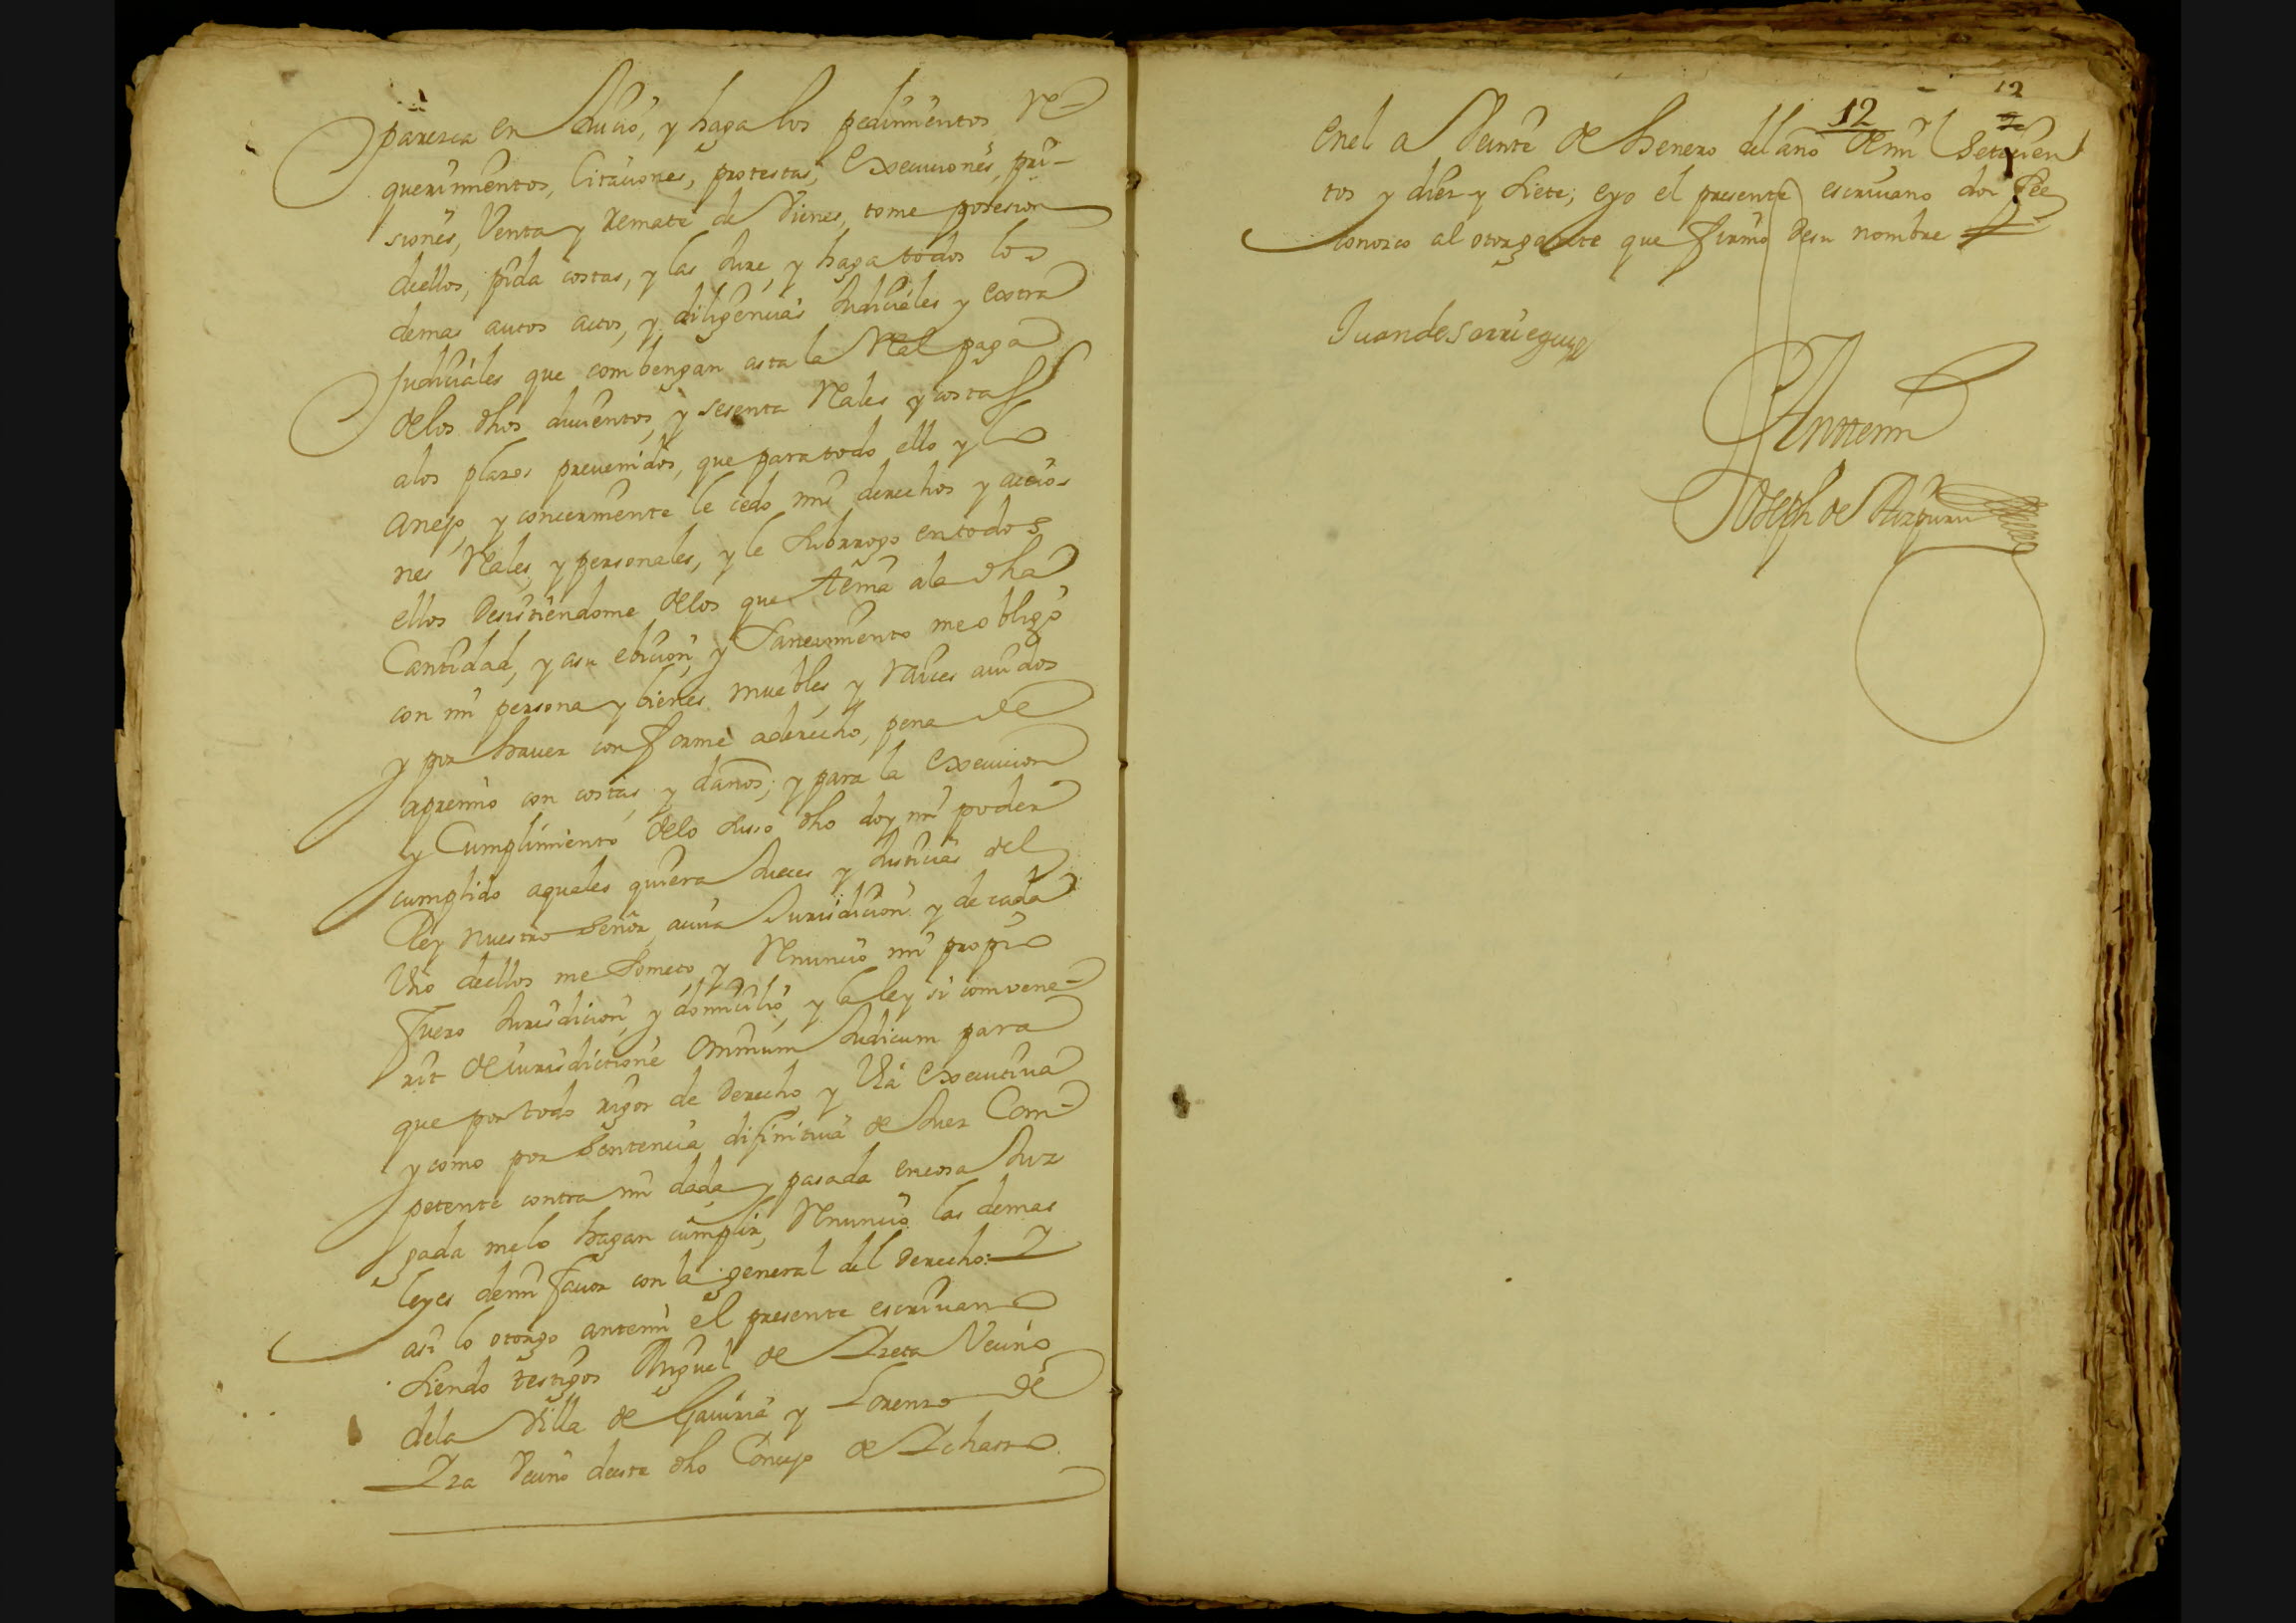 paresca en Juicio, y haga los pedimientos Re-
querimientos, Citaciones, protestas, Execuciones, pri-
siones, Venta y remate de Vienes, tome posesion
dellos, pida costas, y las Jure, y haga todos los
demas autos actos, y diligencias Judiciales y extra
Judiciales que combengan asta la Real paga
de los dhos ducientos, y sesenta Reales y costas
a los plazos preuenidos, que para todo ello y lo
anejo, y concerniente le cedo mis derechos y accio-
nes Reales, y personales, y le Subrrogo en todos
ellos desistiendome de los que tenia a la dha
Cantidad, y a su ebicion, y Saneamiento me obligo
con mi persona y bienes muebles, y Raices auidos
y por hauer conforme a derecho, pena de
apremio con costas, y daños; y para la execucion
y Cumplimiento de lo Suso dho doy mi poder
cumplido a quales quiera Jueces y Justicias del
Rey nuestro Señor, a cuia Jurisdicion y de cada
Vno dellos me Someto, y Renuncio mi propio
fuero Jurisdicion, y domicilio, y la ley si comvene-
rit de iurisdictione omnium Judicum para
que por todo rigor de derecho y Via executiua
y como por Sentencia difinitiua de Juez Com-
petente contra mi dada y pasada en cosa Juz-
gada me lo hagan cumplir, Renuncio las demas
leyes de mi fauor con la general del derecho: Y
asi lo otorgo ante mi el presente escriuano
Siendo testigos Miguel de Areta Vecino
de la Villa de Gauiria y Lorenzo de
Vecino deeste dho Concejo de Ichasso
12
12
2
en el a Veinte de Henero del año de mil Setecien
tos y diez y Siete; e yo el presente escriuano doi fee
conozco al otorgante que firmo de su nombre
Juan de Sarriegui
Ante mi
Joseph de Aizpuru